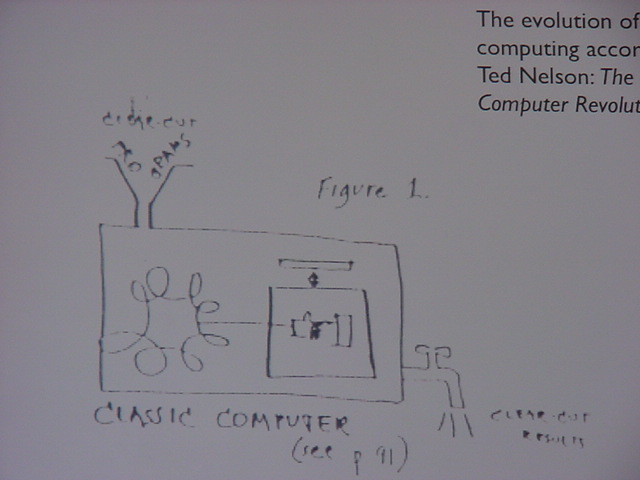 The evolution of
computing accor
Ted Nelson: The
Computer Revolut
CLEAR-CUT
Figure 1.
CLASSIC COMPUTER
(see p 91)
CLEAR-CUT
RESULTS